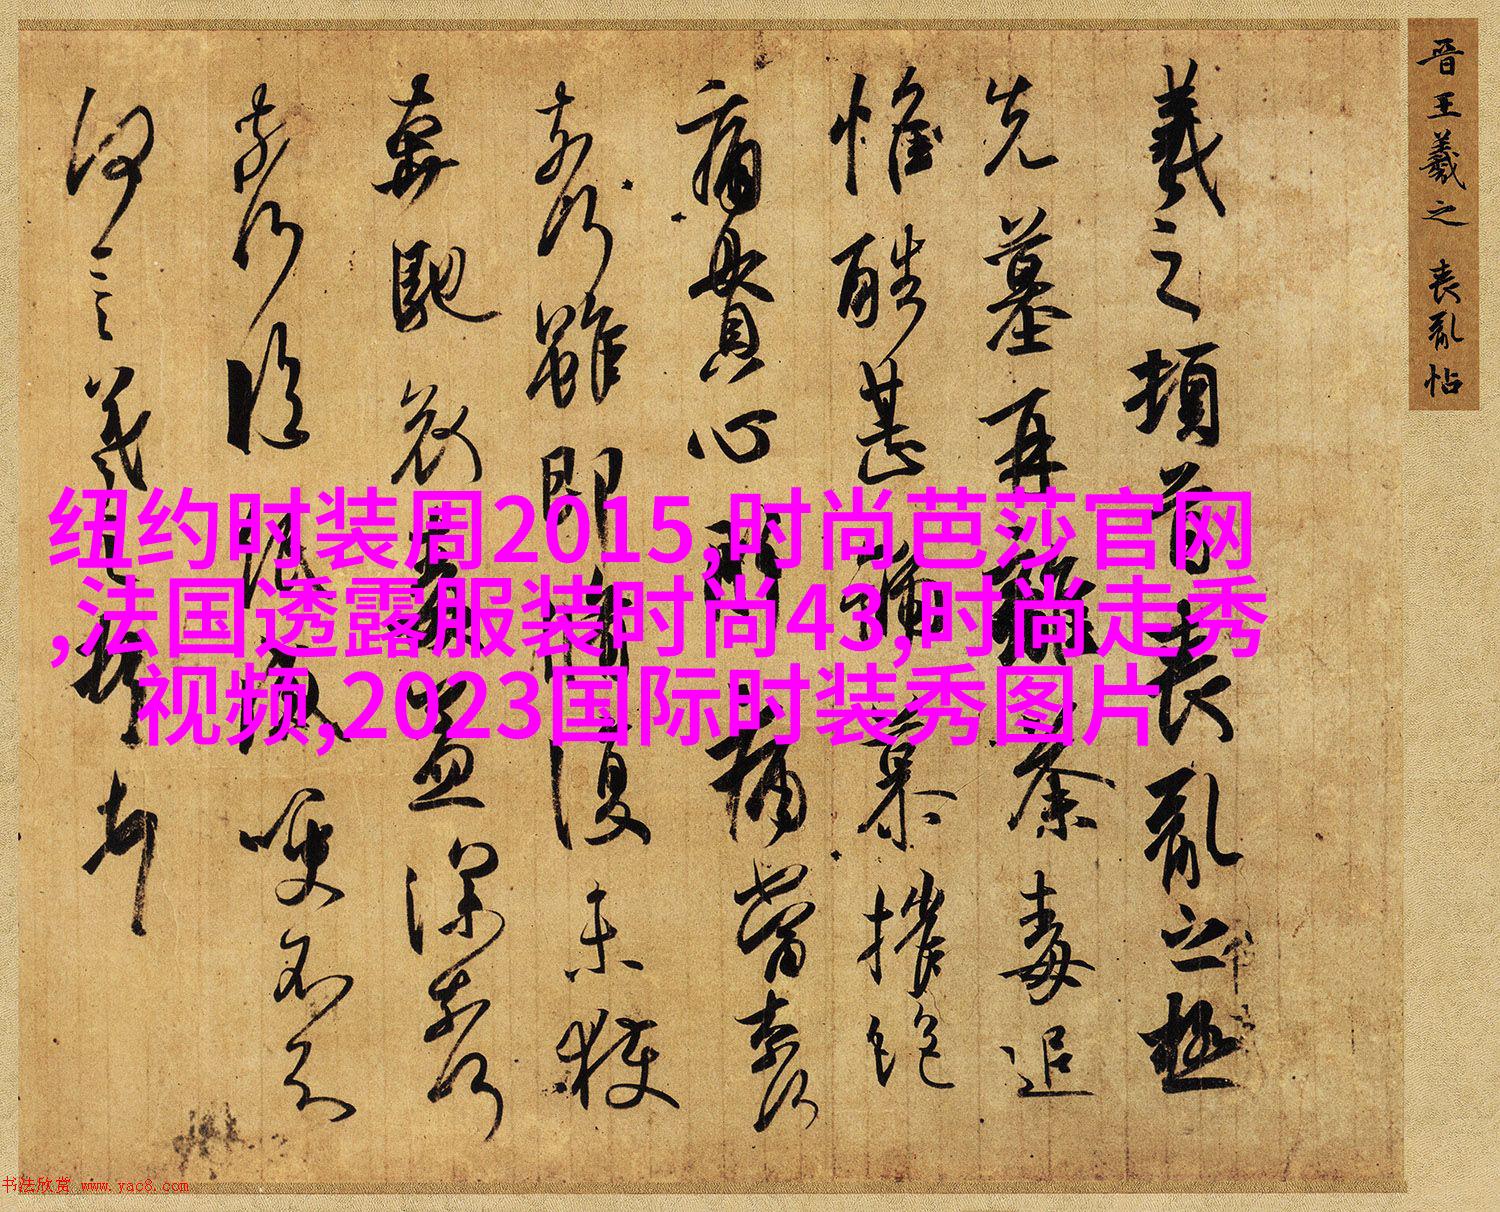 晋王羲之 喪亂帖
羲之頓首喪亂之極
先墓再離荼毒追
惟酷甚號慕摧絶
痛貫心肝痛當奈何
奈何雖即脩復未獲
奔馳哀毒益深奈何
奈何臨紙感哽不知
何言羲之頓首
纽约时装周2015,时尚芭莎官网
,法国透露服装时尚43,时尚走秀
视频,2023国际时装秀图片
书法欣赏 www.yac8.com